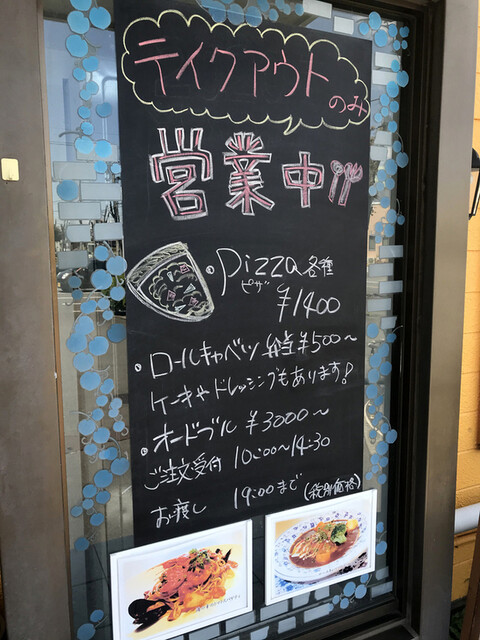 テイクアウト
のみ
営業中
・pizza各種
ピザ
¥1400
・ロールキャベツ 弁当¥500〜
ケーキやドレッシングもあります!
・オードブル ¥3000〜
ご注文受付 10:00〜14:30
お渡し 19:00まで
(税別価格)